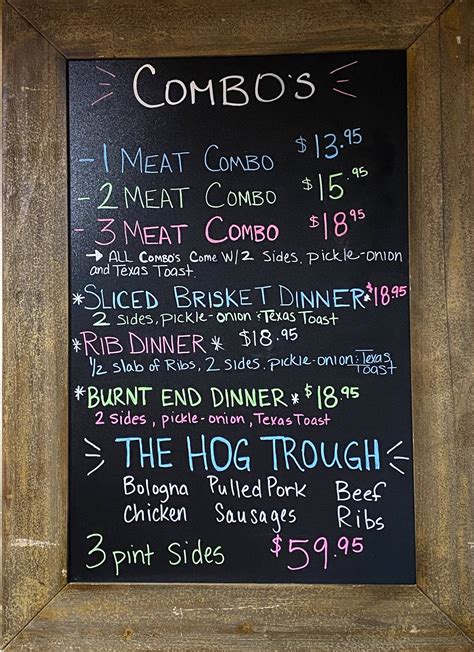 COMBO'S
- 1 MEAT COMBO $13.95
- 2 MEAT COMBO $15.95
- 3 MEAT COMBO $18.95
→ ALL Combo's Come W/ 2 Sides, pickle-onion
and Texas Toast.
*SLICED BRISKET DINNER* $18.95
2 Sides, pickle-onion & Texas Toast
*RIB DINNER* $18.95
1/2 slab of Ribs, 2 sides, pickle-onion & Texas
Toast
*BURNT END DINNER* $18.95
2 Sides, pickle-onion, Texas Toast
THE HOG TROUGH
Bologna Pulled Pork Beef
Chicken Sausages Ribs
3 pint Sides $59.95